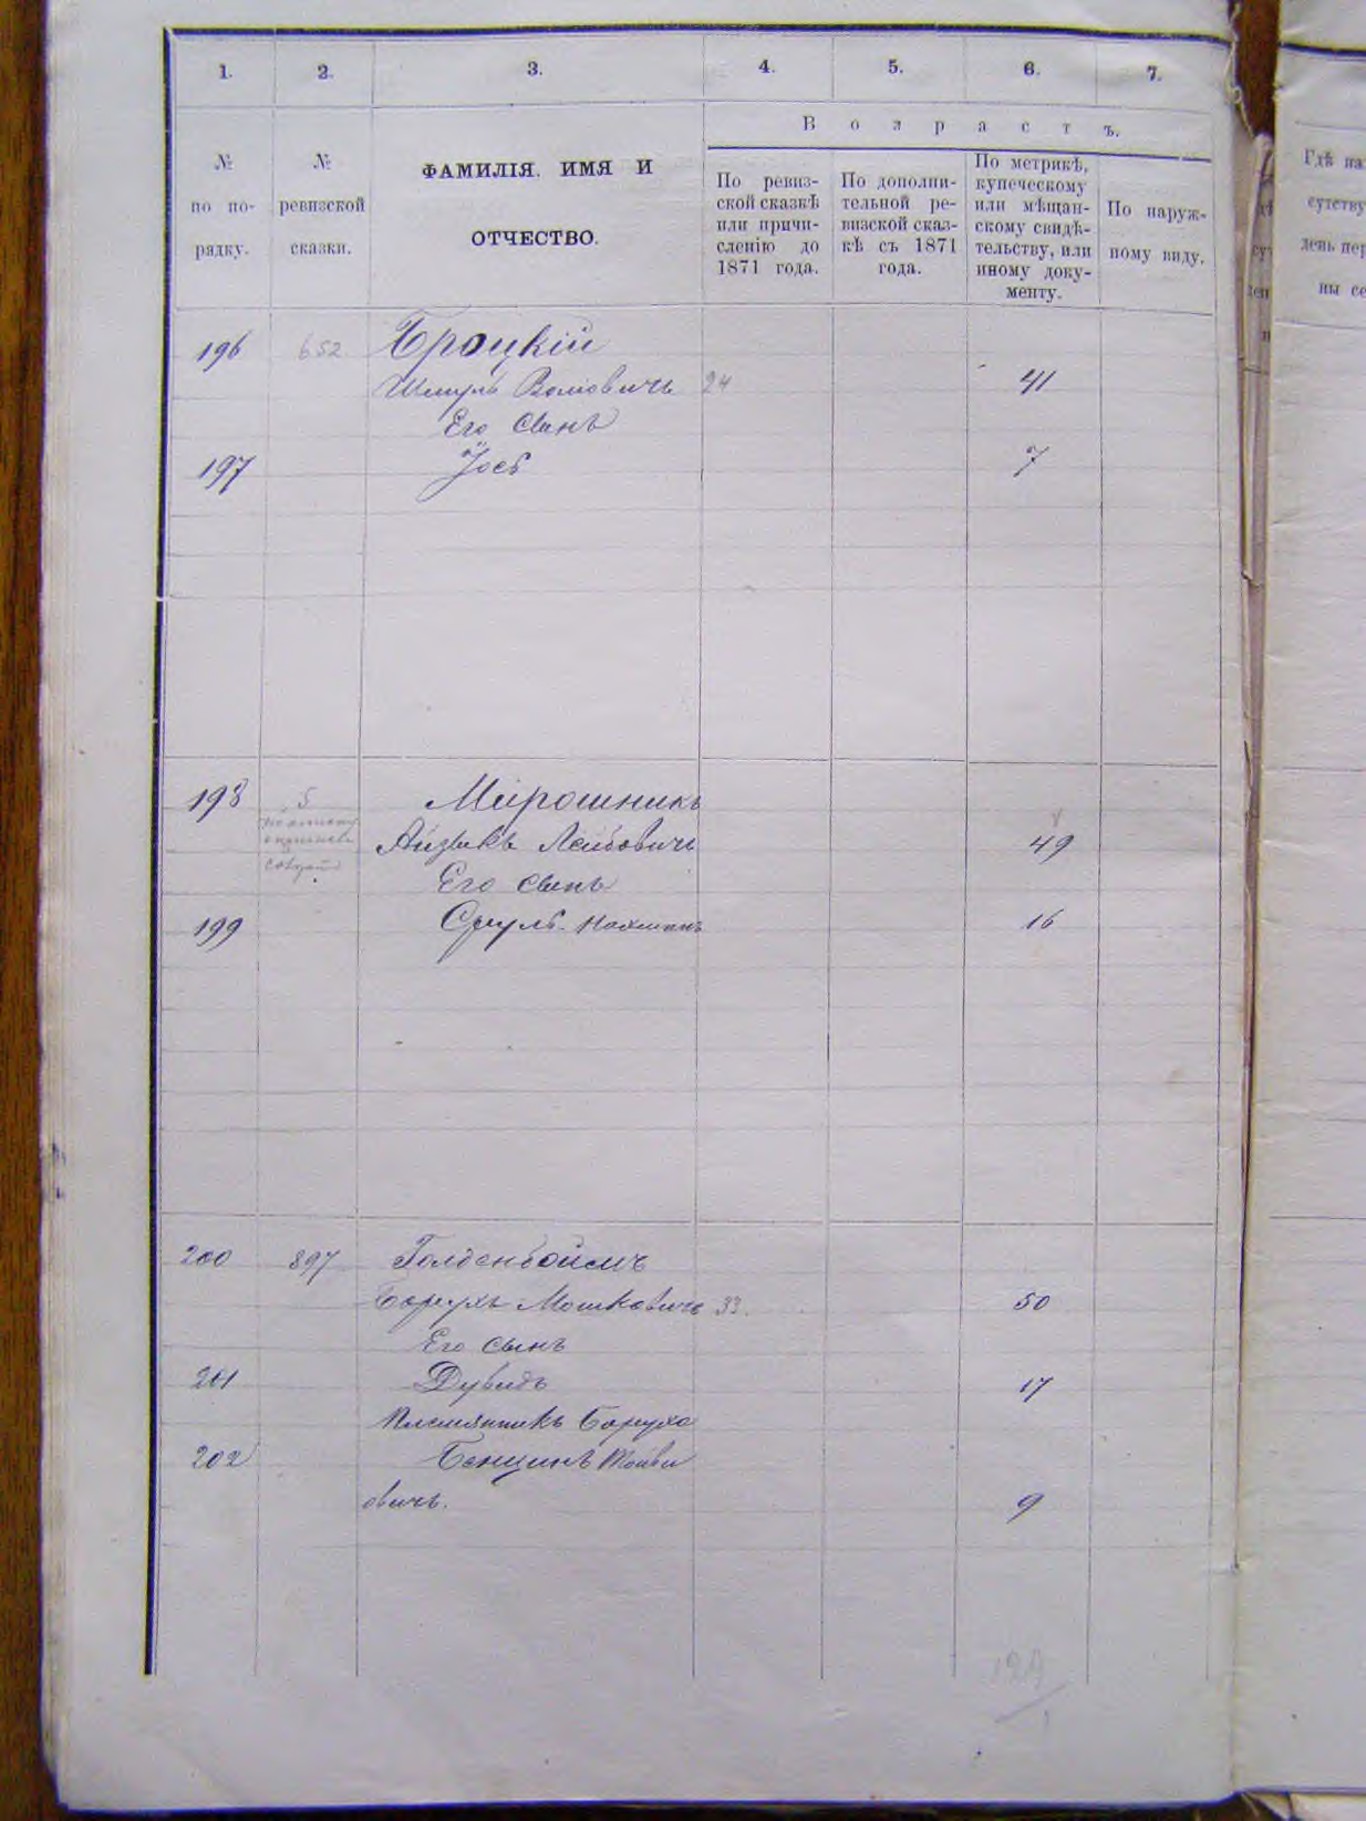 1. 2. 3. 4. 5. 6. 7.
Возрастъ.
№ по по-
рядку.
№ ревизской
сказки.
ФАМИЛІЯ. ИМЯ И
ОТЧЕСТВО.
По ревиз-
ской сказкѣ
или причи-
сленію до
1871 года.
По дополни-
тельной ре-
визской сказ-
кѣ съ 1871
года.
По метрикѣ,
купеческому
или мѣщан-
скому свидѣ-
тельству, или
иному доку-
менту.
По наруж-
ному виду.
196 652 Броцкій
Шмуль Волковичъ 24 41
Его Сынъ
197 Іось 7
198 5 Мирошникъ
Айзикъ Лейбовичъ 49
Его сынъ
199 Сруль-Нахманъ 16
200 897 Голденбоймъ
Борухъ Мошковичъ 33. 50
Его сынъ
201 Дувидъ 17
Племянникъ Боруха
202 Бенционъ
овичъ. 9
Гдѣ на
сутству
день пер
ны се